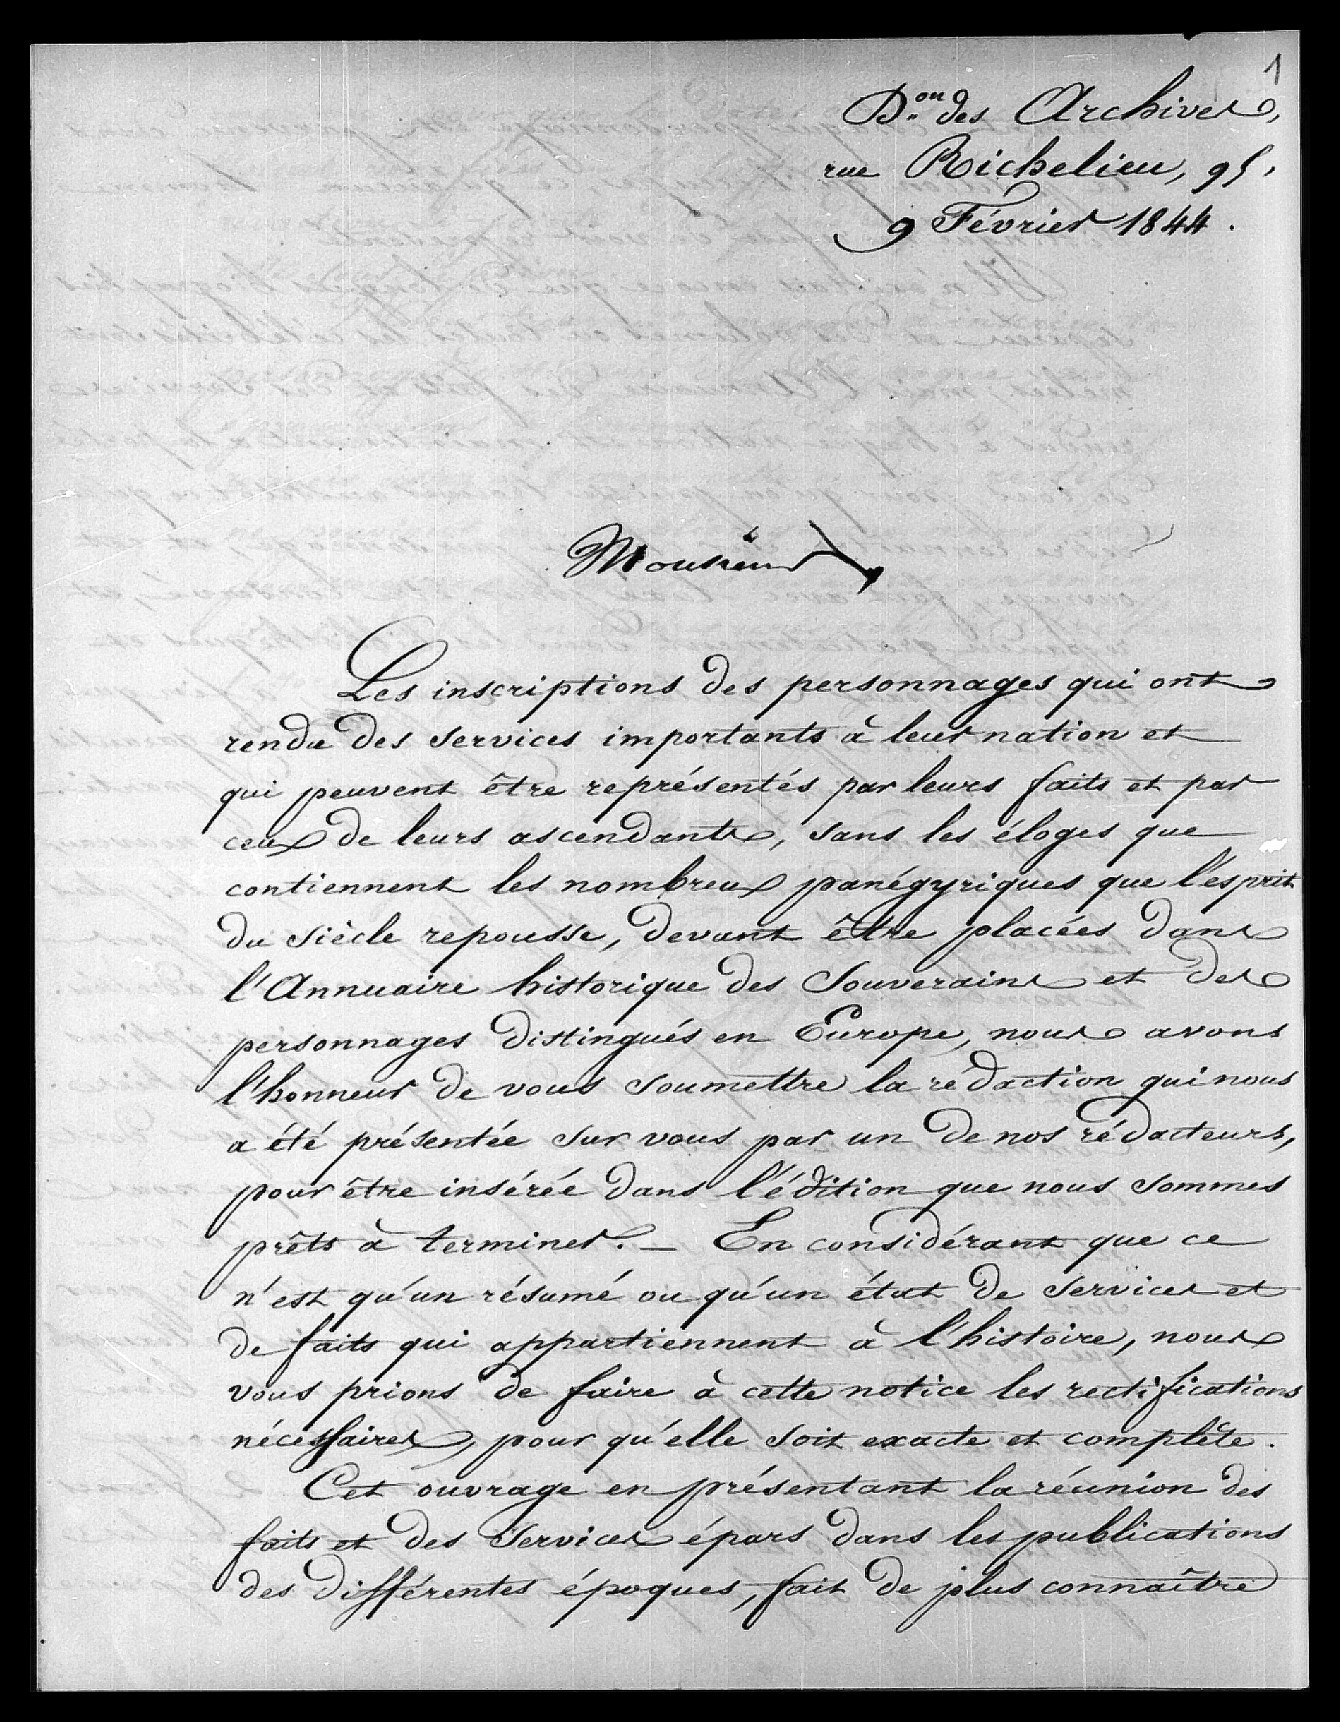 1
D.on des Archives,
rue Richelieu, 95.
9 Février 1844.
Monsieur,
Les inscriptions des personnages qui ont
rendu des services importants à leur nation et
qui peuvent être représentés par leurs faits et par
ceux de leurs ascendants, sans les éloges que
contiennent les nombreux panégyriques que l'esprit
du siècle repousse, devant être placées dans
l'Annuaire historique des Souverains et des
personnages distingués en Europe, nous avons
l'honneur de vous soumettre la rédaction qui nous
a été présentée sur vous par un de nos rédacteurs,
pour être insérée dans l'édition que nous sommes
prêts à terminer. — En considérant que ce
n'est qu'un résumé ou qu'un état de services et
de faits qui appartiennent à l'histoire, nous
vous prions de faire à cette notice les rectifications
nécessaires, pour qu'elle soit exacte et complète.
Cet ouvrage en présentant la réunion des
faits et des services épars dans les publications
des différentes époques, fait de plus connaître